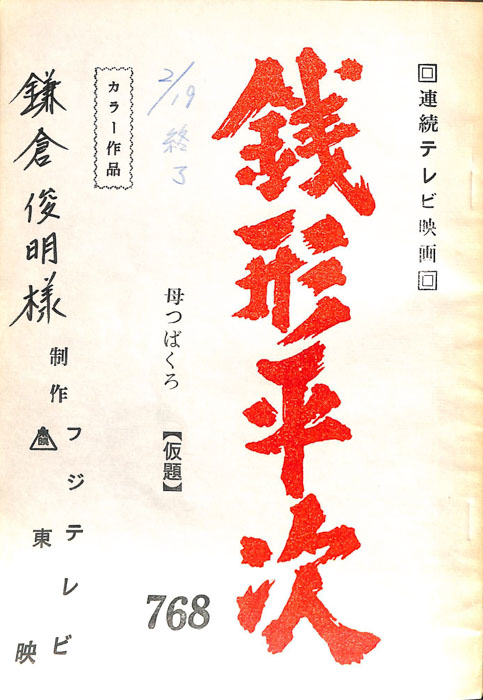 回連続テレビ映画回
銭形平次
母つばくろ【仮題】
768
2/19終了
カラー作品
制作
フジテレビ
東映
鎌倉俊明様